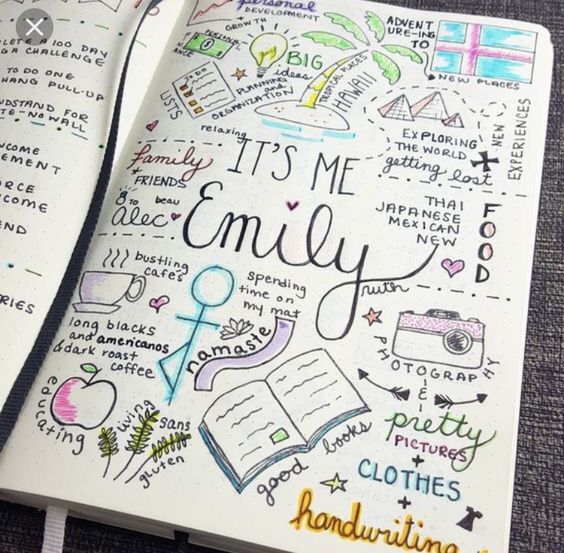 LET
100 DAY
GA CHALLENGE
TO DO ONE
HANG PULL-UP
UDSTAND FOR
TE-NO WALL
NCOME
EMENT
ORCE
COME
END
RIES
personal
DEVELOPMENT
+
GROWTH
PERSONAL
BIG
ideas
PLANNING
and
ORGANIZATION
TO DO
LISTS
TROPICAL PLACES
HAWAII
ADVENT
URE-ING
TO
NEW PLACES
EXPLORING
THE WORLD
getting lost
NEW
EXPERIENCES
relaxing
family
+
FRIENDS
to beau
alec
IT'S ME
Emily
ruth
THAI
JAPANESE
MEXICAN
NEW
FOOD
bustling
cafes
long blacks
and americanos
& dark roast
coffee
spending
time on
my mat
namaste
educating
living
sans
gluten
good books
PHOTOGRAPHY
&
pretty
PICTURES
+
CLOTHES
+
handwriting